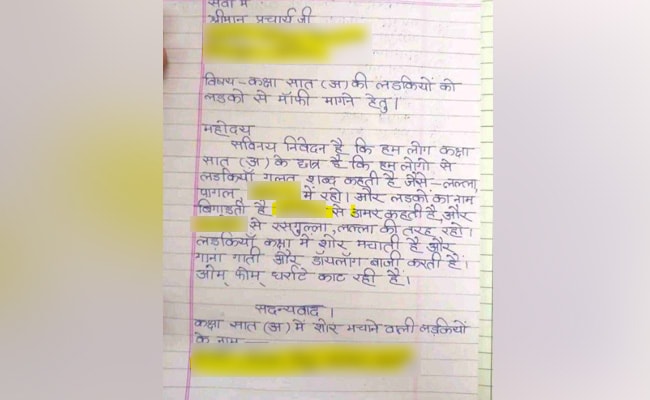 सेवा में
श्रीमान प्रचार्य जी
विषय - कक्षा सात (अ) की लडकियों को
लडको से माँफी मागने हेतु।
महोदय
सविनय निवेदन है कि हम लोग कक्षा
सात (अ) के छात्र है कि हम लोगो से
लडकियाँ गलत शब्द कहती है जैसे - लल्ला,
पागल, में रहो। और लडको का नाम
बिगाडती है से डामर कहती है, और
से रसगुल्ला, लल्ला की तरह रहो।
लडकियाँ कक्षा में शोर मचाती है और
गाना गाती और डॉयलॉग बाजी करती है।
ओम् फोम् धर्राटे काट रही हैं।
सदन्यवाद।
कक्षा सात (अ) में शोर मचाने वाली लडकियों
के नाम —